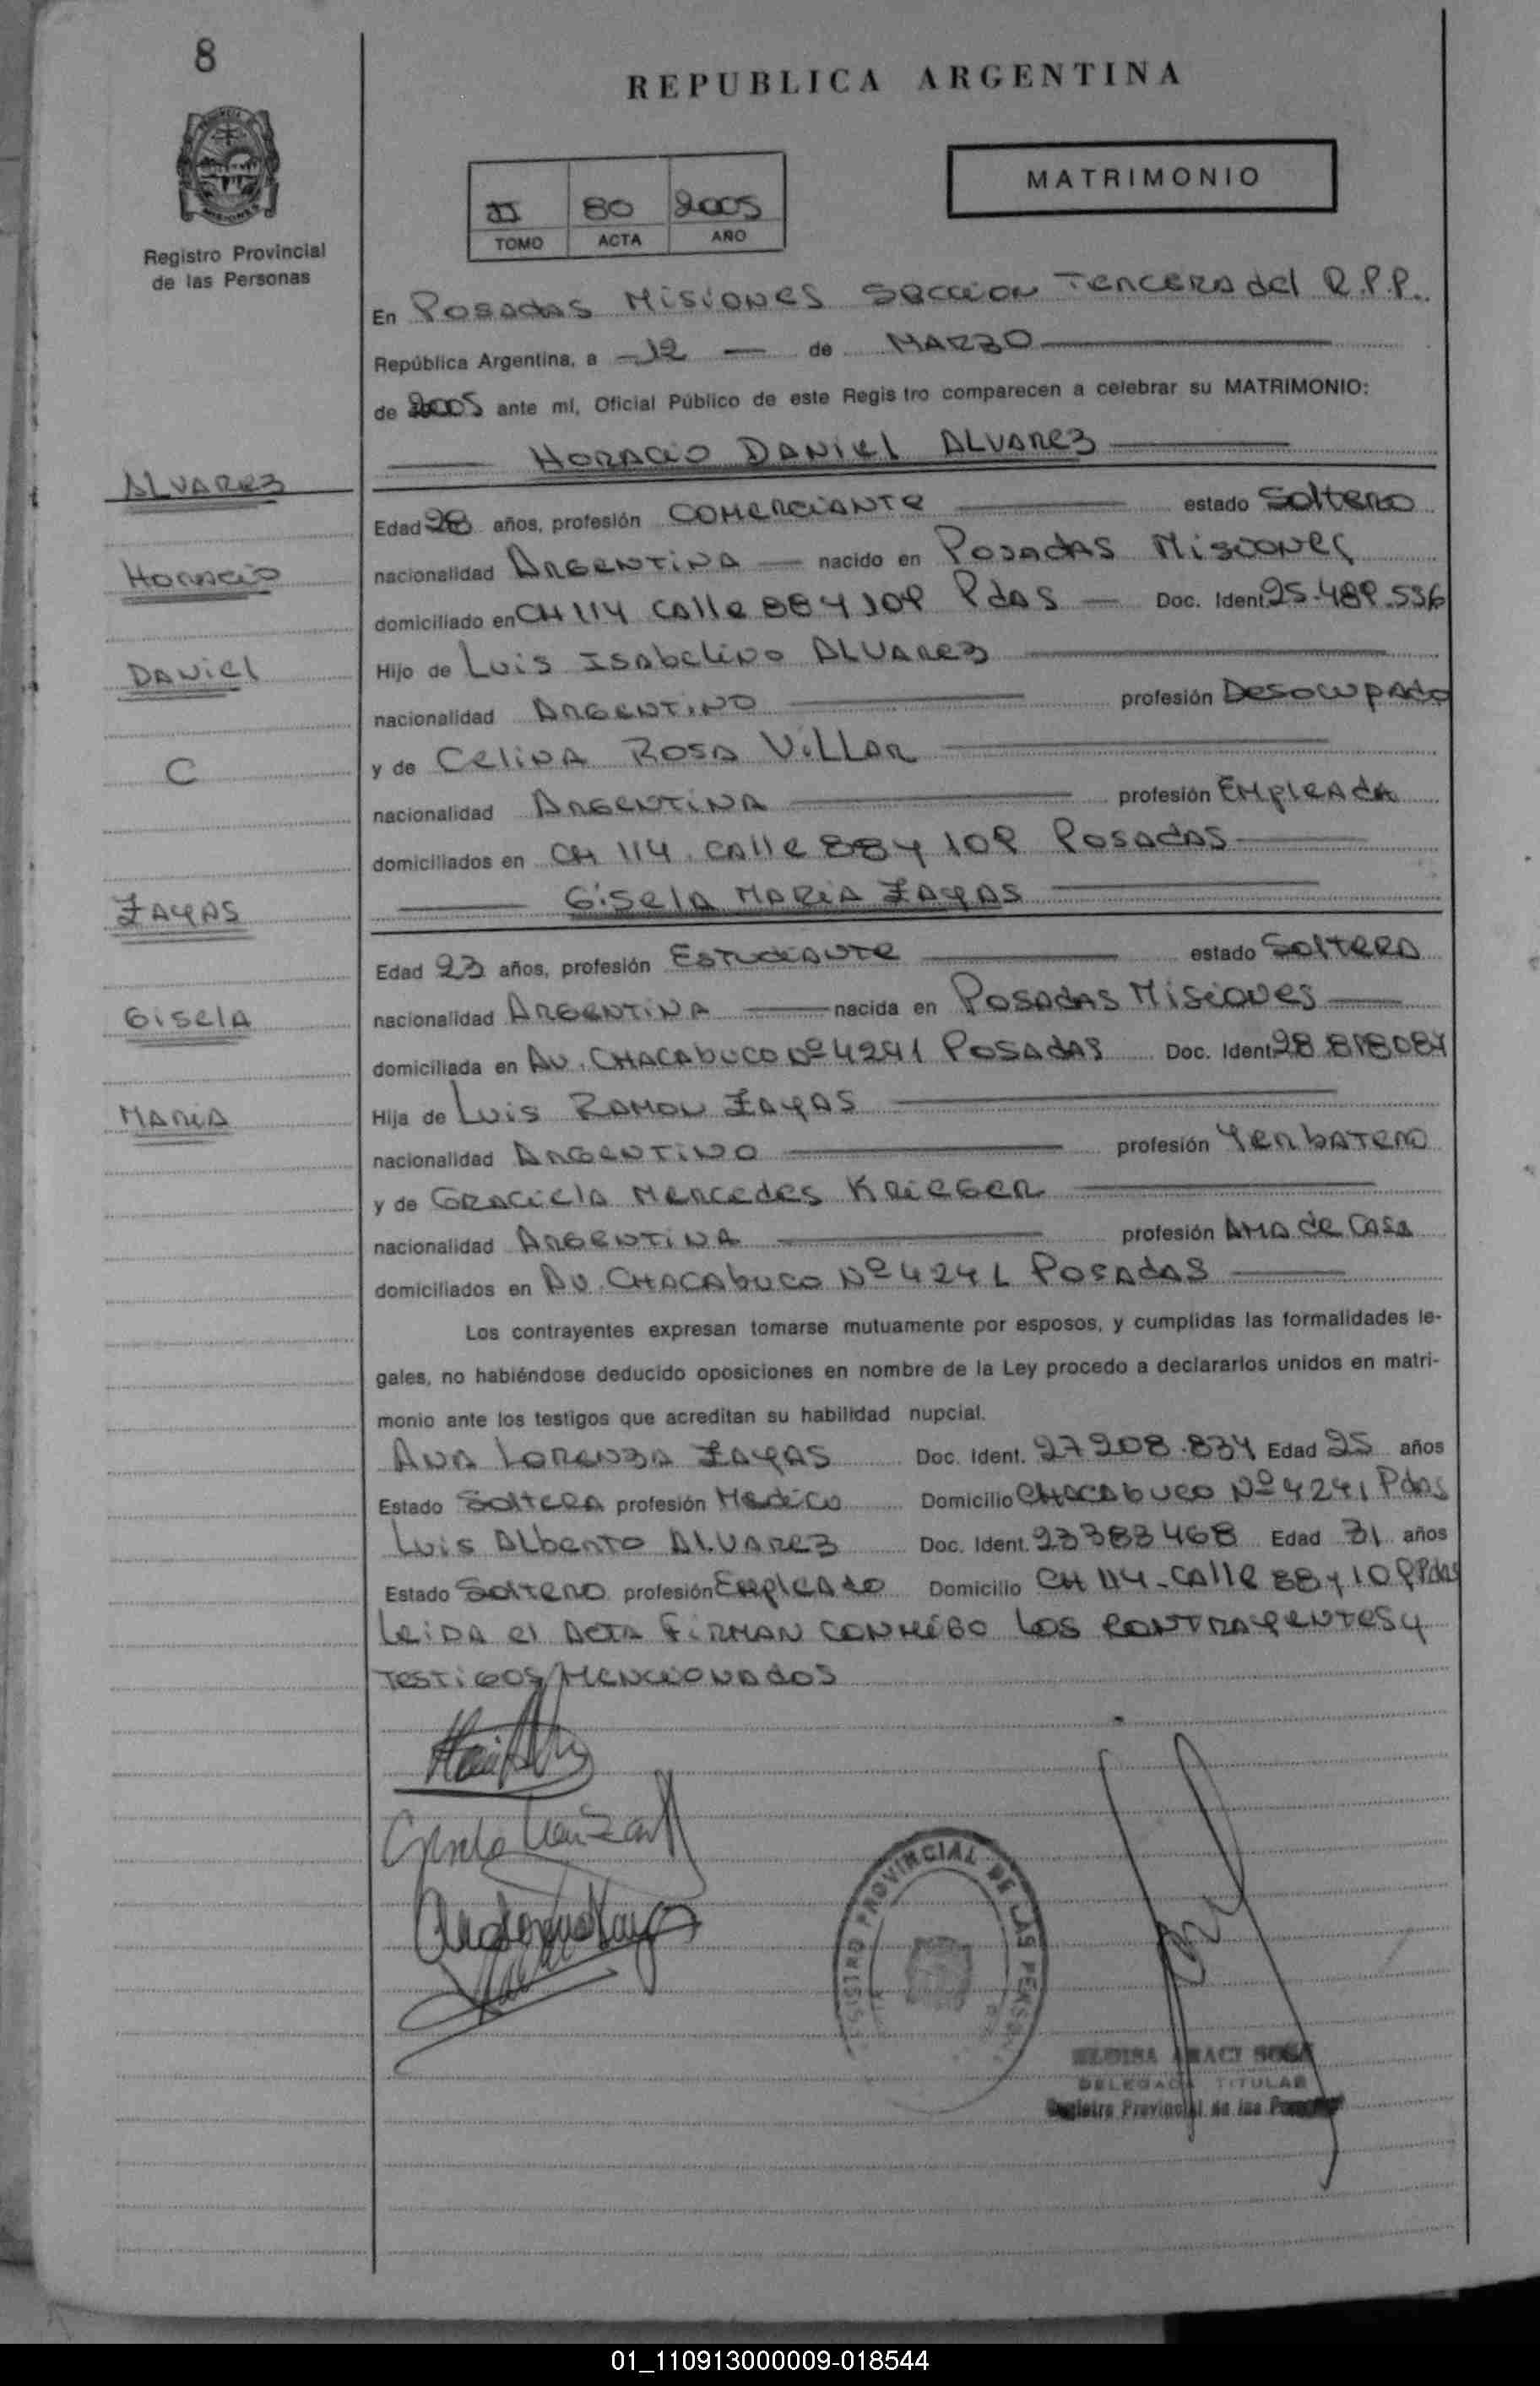 8
REPUBLICA ARGENTINA
MATRIMONIO
II 80 2005
TOMO ACTA AÑO
Registro Provincial
de las Personas
En Posadas Misiones Seccion Tercera del R.P.P.
República Argentina, a 12 de MARZO
de 2005 ante mí, Oficial Público de este Registro comparecen a celebrar su MATRIMONIO:
HORACIO DANIEL ALVAREZ
ALVAREZ
Edad 28 años, profesión COMERCIANTE estado Soltero
nacionalidad ARGENTINA nacido en POSADAS MISIONES
HORACIO
domiciliado en CH 114 calle 88 y 109 Pdas Doc. Ident. 25.489.536
Hijo de Luis Isabelino ALVAREZ
DANIEL
nacionalidad ARGENTINO profesión Desocupado
y de Celina Rosa Villar
C
nacionalidad ARGENTINA profesión Empleada
domiciliados en CH 114 calle 88 y 109 Posadas
Gisela Maria Zayas
ZAYAS
Edad 23 años, profesión Estudiante estado Soltera
nacionalidad ARGENTINA nacida en Posadas Misiones
Gisela
domiciliada en Av. CHACABUCO Nº 4241 POSADAS Doc. Ident. 28 818084
Hija de Luis Ramon Zayas
Maria
nacionalidad ARGENTINO profesión Yerbatero
y de Graciela Mercedes Krieger
nacionalidad ARGENTINA profesión Ama de Casa
domiciliados en Av. CHACABUCO Nº 4241 POSADAS
Los contrayentes expresan tomarse mutuamente por esposos, y cumplidas las formalidades le-
gales, no habiéndose deducido oposiciones en nombre de la Ley procedo a declararlos unidos en matri-
monio ante los testigos que acreditan su habilidad nupcial.
Ana Lorenza Zayas Doc. Ident. 27208.834 Edad 25 años
Estado Soltera profesión Medico Domicilio Chacabuco Nº 4241 Pdas
Luis Alberto ALVAREZ Doc. Ident. 23383468 Edad 31 años
Estado Soltero profesión Empleado Domicilio CH 114 - calle 88 y 109 Pdas
Leida el Acta firman conmigo los contrayentes y
testigos mencionados
REGISTRO PROVINCIAL DE LAS PERSONAS
ELOISA ARACI SOSA
DELEGADA TITULAR
Registro Provincial de las Personas
01_110913000009-018544